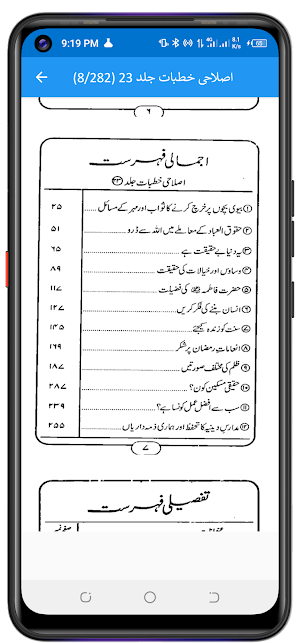 9:19 PM 4G 8.1 K/s 60
اصلاحی خطبات جلد 23 (8/282)
۶
اجمالی فہرست
اصلاحی خطبات جلد ۲۳
۱ بیوی بچوں پر خرچ کرنے کا ثواب اور مہر کے مسائل ۲۵
۲ حقوق العباد کے معاملے میں اللہ سے ڈرو ۵۱
۳ یہ دنیا بے حقیقت ہے ۶۵
۴ وساوس اور خیالات کی حقیقت ۸۹
۵ حضرت فاطمہ کی فضیلت ۱۱۷
۶ انسان بننے کی فکر کریں ۱۲۷
۷ سنت کو زندہ کیجئے ۱۴۵
۸ انعامات رمضان پر شکر ۱۶۹
۹ ظلم کی مختلف صورتیں ۱۸۷
۱۰ حقیقی مسکین کون؟ ۲۸۷
۱۱ سب سے افضل عمل کونسا ہے؟ ۲۳۹
۱۲ مدارس دینیہ کا تحفظ اور ہماری ذمہ داریاں ۲۵۵
۷
تفصیلی فہرست